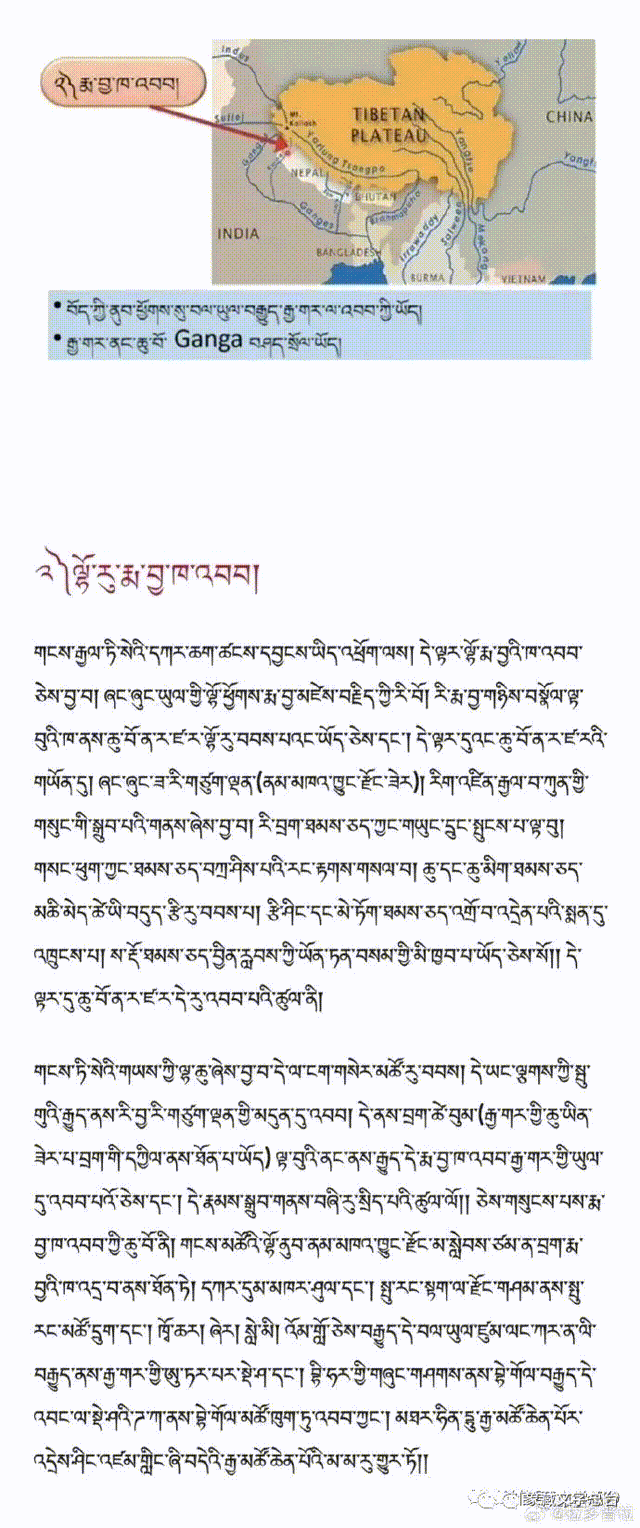 ༢༽ རྨ་བྱ་ཁ་འབབ།
Indus
Sutlej
Mt. Kailash
TIBETAN
PLATEAU
CHINA
Yellow
Yangtze
Yarlung Tsangpo
NEPAL
BHUTAN
Ganges
Brahmaputra
INDIA
BANGLADESH
Irrawaddy
Salween
Mekong
BURMA
VIETNAM
• བོད་ཀྱི་ནུབ་ཕྱོགས་སུ་བལ་ཡུལ་བརྒྱུད་རྒྱ་གར་ལ་འབབ་ཀྱི་ཡོད།
• རྒྱ་གར་ནང་ཆུ་བོ་ Ganga བཤད་སྲོལ་ཡོད།
༢༽ལྷོ་རུ་རྨ་བྱ་ཁ་འབབ།
གངས་རྒྱལ་ཏི་སེའི་དཀར་ཆག་ཚངས་དབྱངས་ཡིད་འཕྲོག་ལས། དེ་ལྟར་ལྷོ་རྨ་བྱའི་ཁ་འབབ་
ཅེས་བྱ་བ། ཞང་ཞུང་ཡུལ་གྱི་ལྷོ་ཕྱོགས་རྨ་བྱ་མཛེས་བརྗིད་ཀྱི་རི་བོ། རི་རྨ་བྱ་གཉིས་བསྣོལ་ལྟ་
བུའི་ཁ་ནས་ཆུ་བོ་ན་ར་ཛ་ར་ལྷོ་རུ་བབས་པའང་ཡོད་ཅེས་དང་། དེ་ལྟར་དུའང་ཆུ་བོ་ན་ར་ཛ་རའི་
གཡོན་དུ། ཞང་ཞུང་ཟ་རི་གཙུག་ལྡན་(ནམ་མཁའ་ཁྱུང་རྫོང་ཟེར)། རིག་འཛིན་རྒྱལ་བ་ཀུན་གྱི་
གསུང་གི་སྒྲུབ་པའི་གནས་ཞེས་བྱ་བ། རི་བྲག་ཐམས་ཅད་ཀྱང་གཡུང་དྲུང་སྤུངས་པ་ལྟ་བུ།
གསང་ཕུག་ཀྱང་ཐམས་ཅད་བཀྲ་ཤིས་པའི་རང་རྟགས་གསལ་བ། ཆུ་དང་ཆུ་མིག་ཐམས་ཅད་
མཆི་མེད་ཚེ་ཡི་བདུད་རྩིར་བབས་པ། རྩི་ཤིང་དང་མེ་ཏོག་ཐམས་ཅད་འགྲོ་བ་འདྲེན་པའི་སྨན་དུ་
འཁྲུངས་པ། ས་རྡོ་ཐམས་ཅད་བྱིན་རླབས་ཀྱི་ཡོན་ཏན་བསམ་གྱི་མི་ཁྱབ་པ་ཡོད་ཅེས་སོ།། དེ་
ལྟར་དུ་ཆུ་བོ་ན་ར་ཛ་ར་དེ་རུ་འབབ་པའི་ཚུལ་ནི།
གངས་ཏི་སེའི་གཡས་ཀྱི་ལྷ་ཆུ་ཞེས་བྱ་བ་དེ་ལ་ངག་གསེར་མཚོ་རུ་བབས། དེ་ཡང་ལྕགས་ཀྱི་སྦུ་
གུའི་རྒྱུད་ནས་རི་བྱ་རི་གཙུག་ལྡན་གྱི་མདུན་དུ་འབབ། དེ་ནས་བྲག་ཚེ་བུམ་(རྒྱ་གར་གྱི་ཆུ་ཡིན་
ཟེར་པ་བྲག་གི་དཀྱིལ་ནས་ཐོན་པ་ཡོད) ལྟ་བུའི་ནང་ནས་རྒྱུད་དེ་རྨ་བྱ་ཁ་འབབ་རྒྱ་གར་གྱི་ཡུལ་
དུ་འབབ་པའོ་ཅེས་དང་། དེ་རྣམས་སྒྲུབ་གནས་བཞི་རུ་སྲིད་པའི་ཚུལ་ལོ།། ཅེས་གསུངས་པས་རྨ་
བྱ་ཁ་འབབ་ཀྱི་ཆུ་བོ་ནི། གངས་མཚོའི་ལྷོ་ནུབ་ནམ་མཁའ་ཁྱུང་རྫོང་མ་སླེབས་ཙམ་ན་བྲག་རྨ་
བྱའི་ཁ་འདྲ་བ་ནས་ཐོན་ཏེ། དཀར་དུམ་མཁར་ཤུལ་དང་། སྤུ་རང་སྟག་ལ་རྫོང་གཤམ་ནས་སྤུ་
རང་མཚོ་དྲུག་དང་། ཁྲོ་ཆར། ཞེར། སླེ་མི། འོམ་གློ་ཅེས་བརྒྱུད་དེ་བལ་ཡུལ་ཛུམ་ལང་ཀར་ན་ལི་
བརྒྱུད་ནས་རྒྱ་གར་གྱི་ཨུ་ཏར་པར་སྡེ་ཤ་དང་། བྷི་ཧར་གྱི་གཞུང་གཤགས་ནས་བྷེ་གོལ་བརྒྱུད་དེ་
འབང་ལ་སྡེ་ཤའི་ཌ་ཀ་ནས་བྷེ་གོལ་མཚོ་ཁུག་ཏུ་འབབ་ཀྱང་། མཐར་ཧིན་དྷུ་རྒྱ་མཚོ་ཆེན་པོར་
འདྲེས་ཤིང་འཛམ་གླིང་ཞི་བདེའི་རྒྱ་མཚོ་ཆེན་པོའི་མ་མ་རུ་གྱུར་ཏོ།།